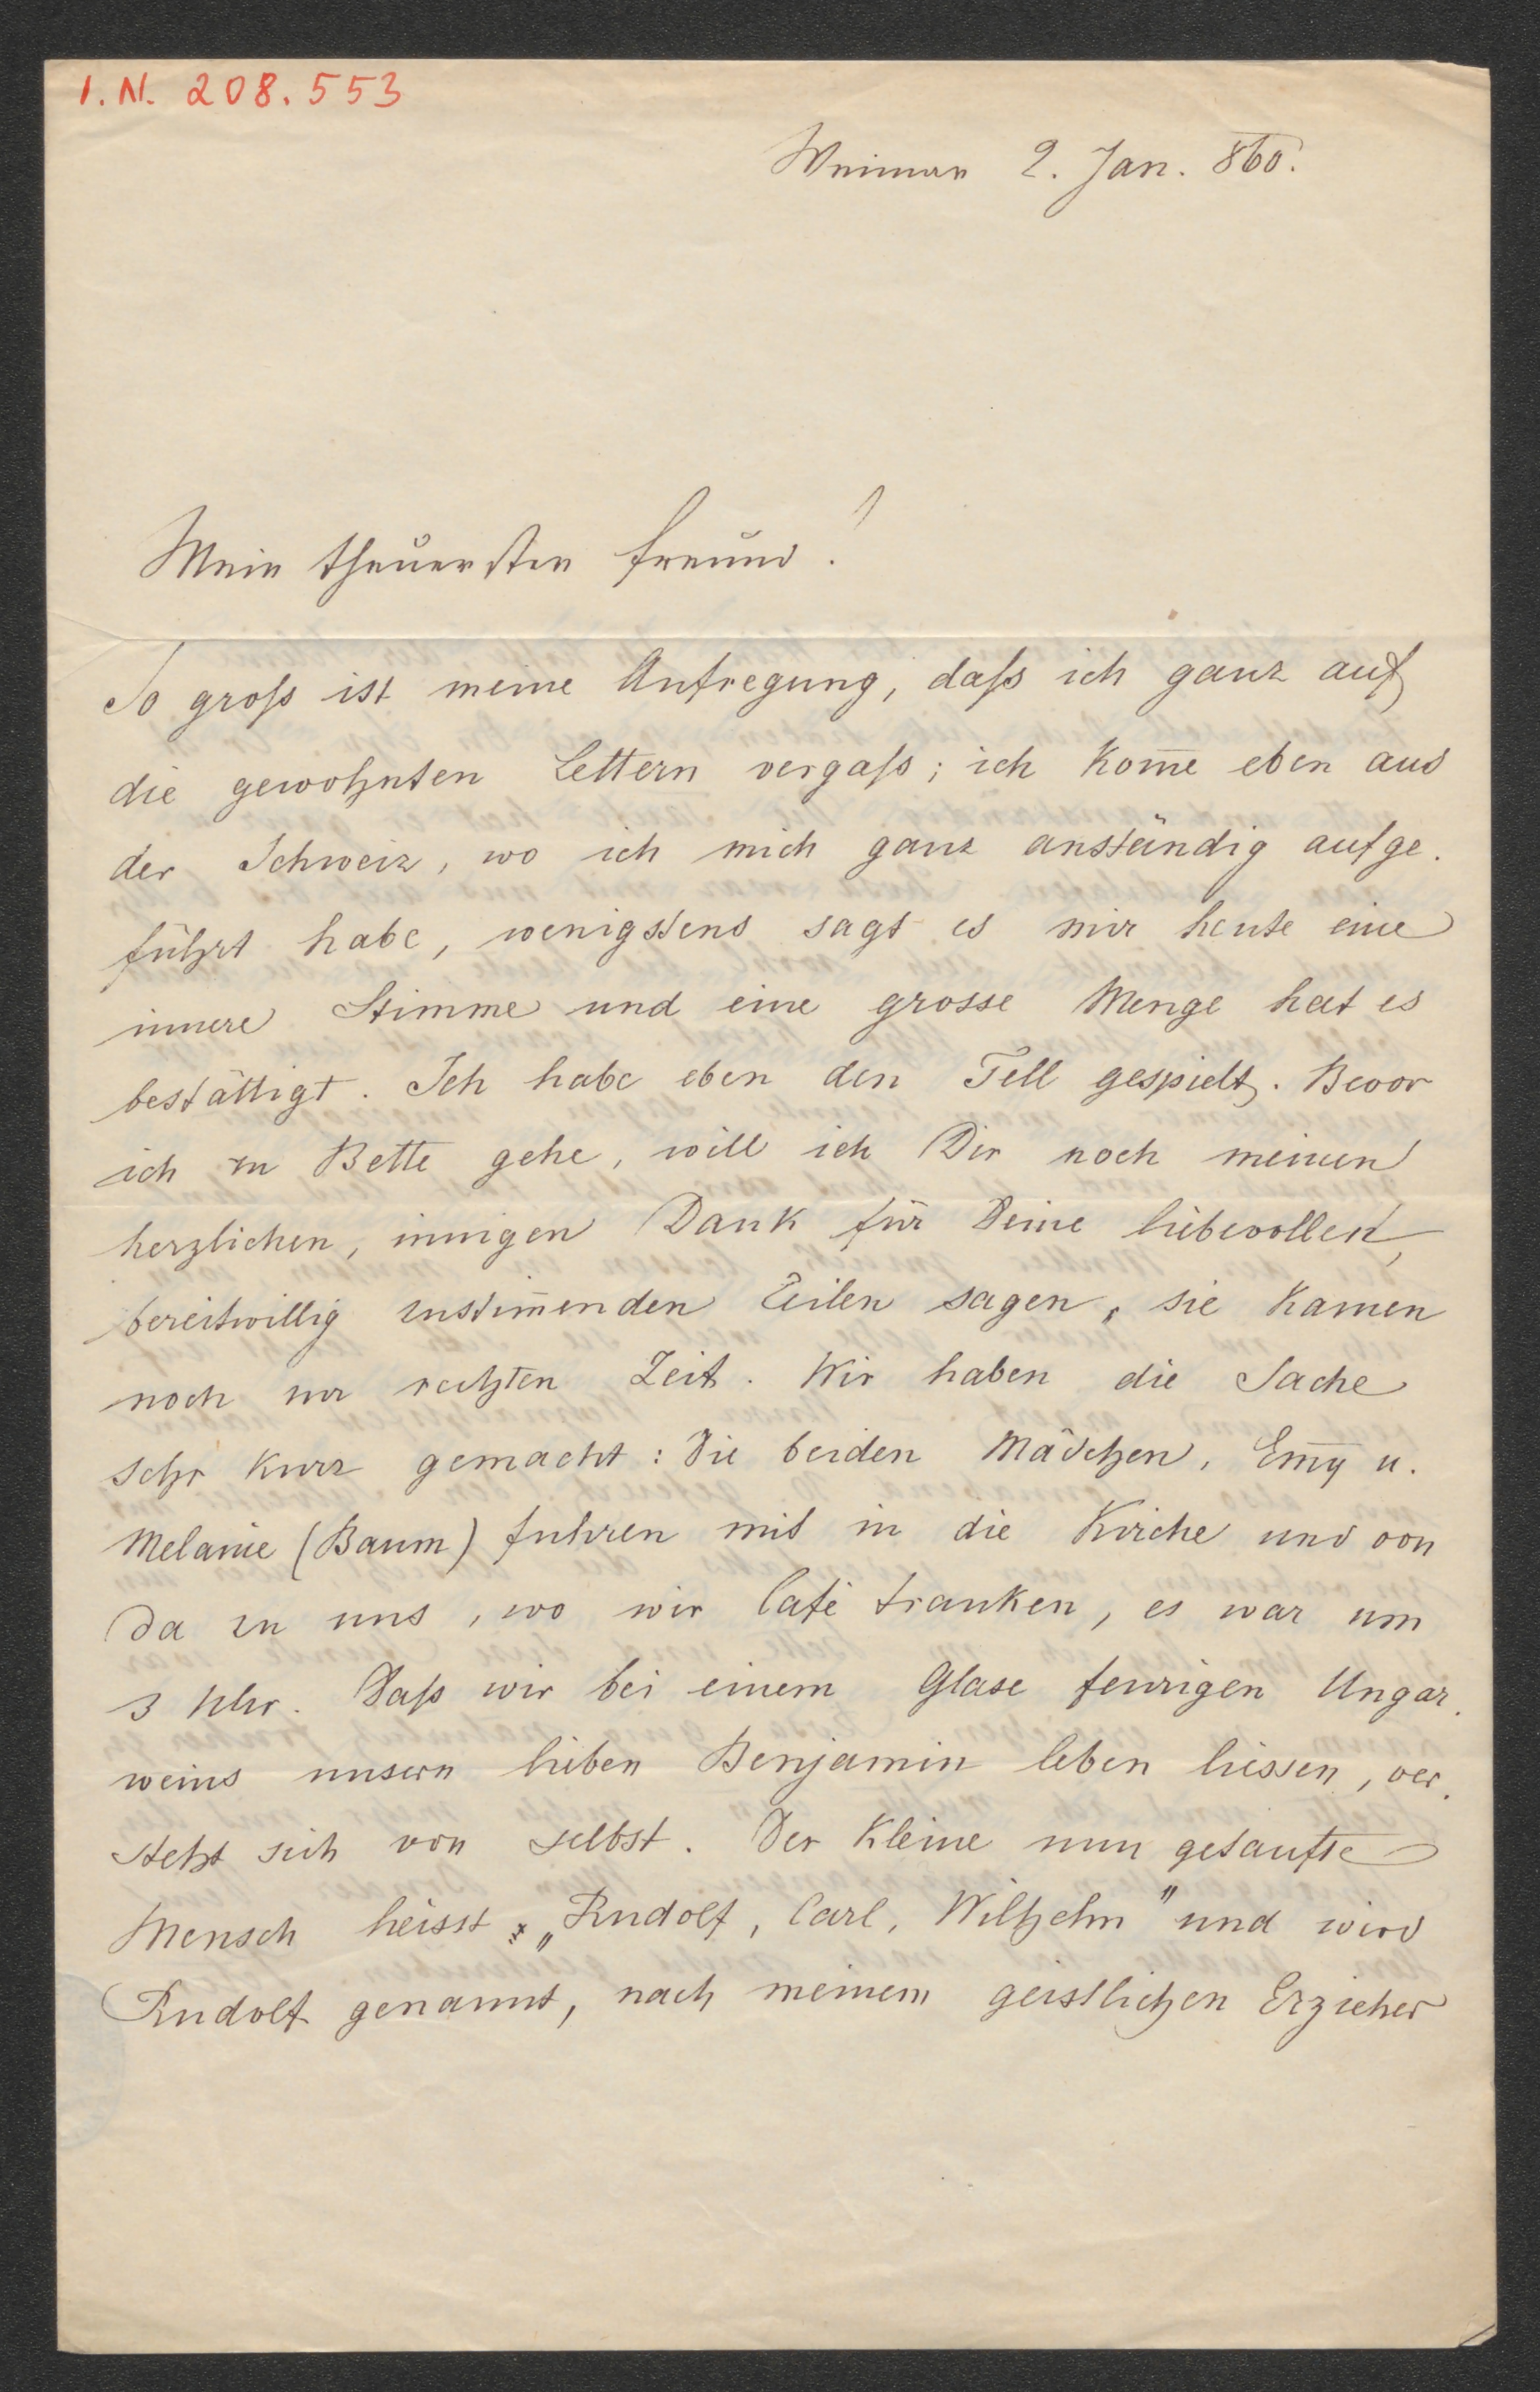 I.N. 208.553
Weimar 2. Jan. 860.
Mein theuerster Freund!
So groß ist meine Aufregung, daß ich ganz auf
die gewohnten Lettern vergaß; ich kom̅e eben aus
der Schweiz, wo ich mich ganz anständig aufge-
führt habe, wenigstens sagt es mir heute eine
innere Stimme und eine grosse Menge hat es
bestättigt. Ich habe eben den Tell gespielt. Bevor
ich zu Bette gehe, will ich Dir noch meinen
herzlichen, innigen Dank für Deine liebevollen,
bereitwillig zustim̅enden Zeilen sagen, sie kamen
noch zur rechten Zeit. Wir haben die Sache
sehr kurz gemacht: Die beiden Mädchen, Em̅y u.
Melanie (Baum) fuhren mit in die Kirche und von
da zu uns, wo wir Café tranken, es war um
3 Uhr. Daß wir bei einem Glase feurigen Ungar-
weins unsern lieben Benjamin leben liessen, ver-
steht sich von selbst. Der kleine nun getaufte
Mensch heisst „Rudolf, Carl, Wilhelm" und wird
Rudolf genannt, nach meinem geistlichen Erzieher